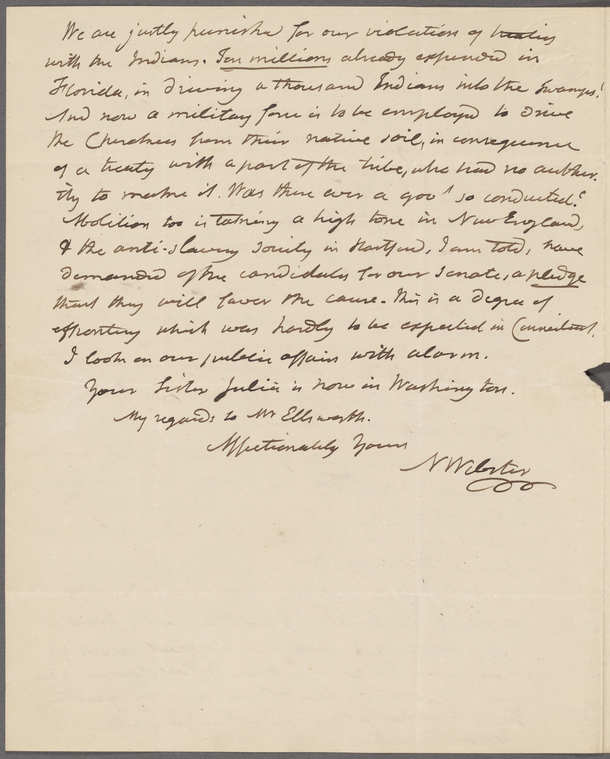 We are justly punished for our violation of treaties
with the Indians. Ten millions already expended in
Florida, in driving a thousand Indians into the swamps!
And now a military force is to be employed to drive
the Cherokees from their native soil, in consequence
of a treaty with a part of the tribe, who had no author-
ity to make it. Was there ever a govt so conducted?
Abolition too is taking a high tone in New England,
& the anti-slavery society in Hartford, I am told, have
demanded of the candidates for our Senate, a pledge
that they will favor the cause. This is a degree of
effrontery which was hardly to be expected in Connecticut.
I look on our public affairs with alarm.
Your Sister Julia is now in Washington.
My regards to Mr Ellsworth.
Affectionately Yours
N Webster